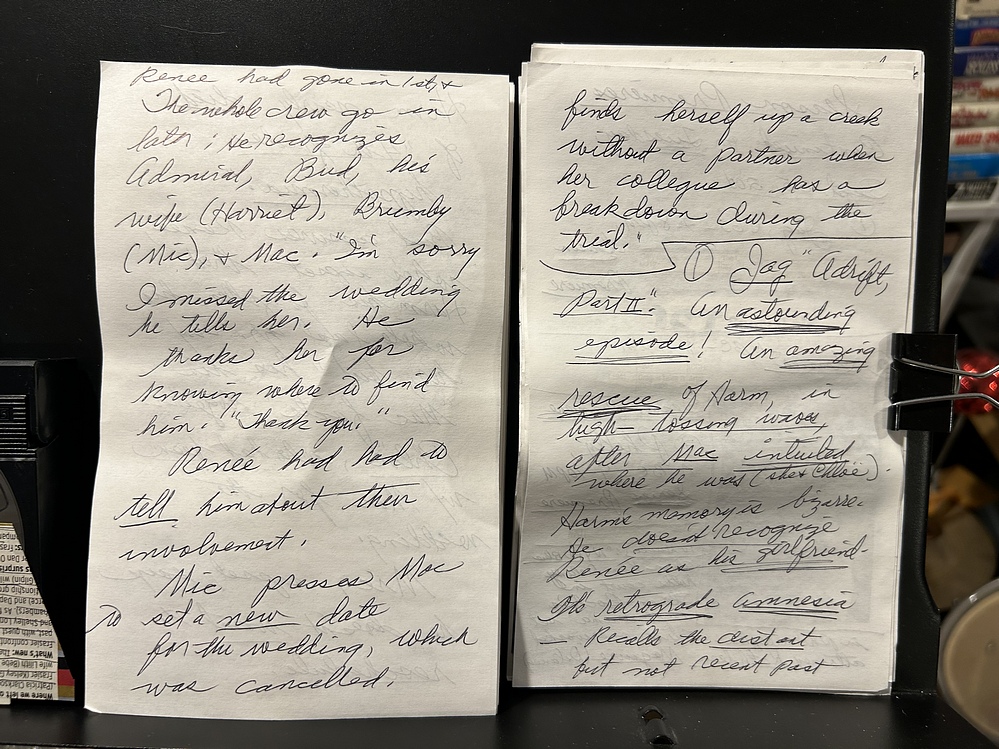 Renee had gone in 1st, &
The whole crew go in
later; He recognizes
Admiral, Bud, his
wife (Harriet), Brumby
(Mic), & Mac. "I'm sorry
I missed the wedding
he tells her. He
thanks her for
knowing where to find
him. "Thank you."
Reneé had had to
tell him about their
involvement.
Mic presses Mac
to set a new date
for the wedding, which
was cancelled.
finds herself up a creek
without a partner when
her collegue has a
breakdown during the
trial."
① Jag "Adrift,
Part II". An astounding
episode! An amazing
rescue of Harm, in
high-tossing waves,
after Mac intuited
where he was (she & Chloe).
Harm's memory is bizarre.
He doesn't recognize
Renee as his girlfriend.
It's retrograde amnesia
— Recalls the distant
but not recent past